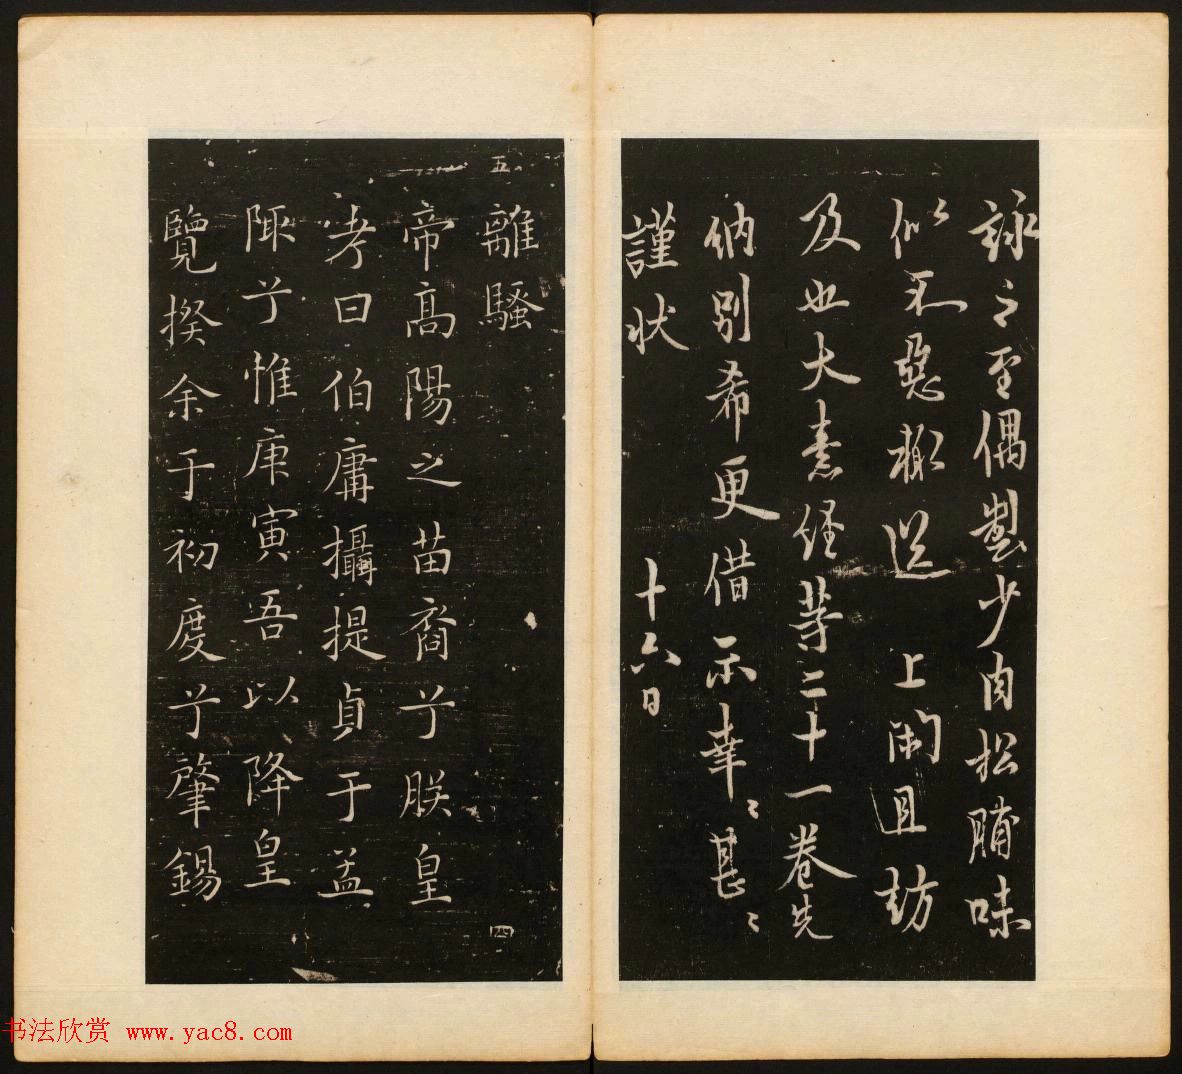 詠之至偶製少肉松脯味
似不惡輒送 上且訪
及也大素經等二十一卷先
納別希更借示幸〻甚〻
謹状 十六日
五
離騷
帝高陽之苗裔兮朕皇
考曰伯庸攝提貞于孟
陬兮惟庚寅吾以降皇
覽揆余于初度兮肇錫
四
书法欣赏 www.yac8.com